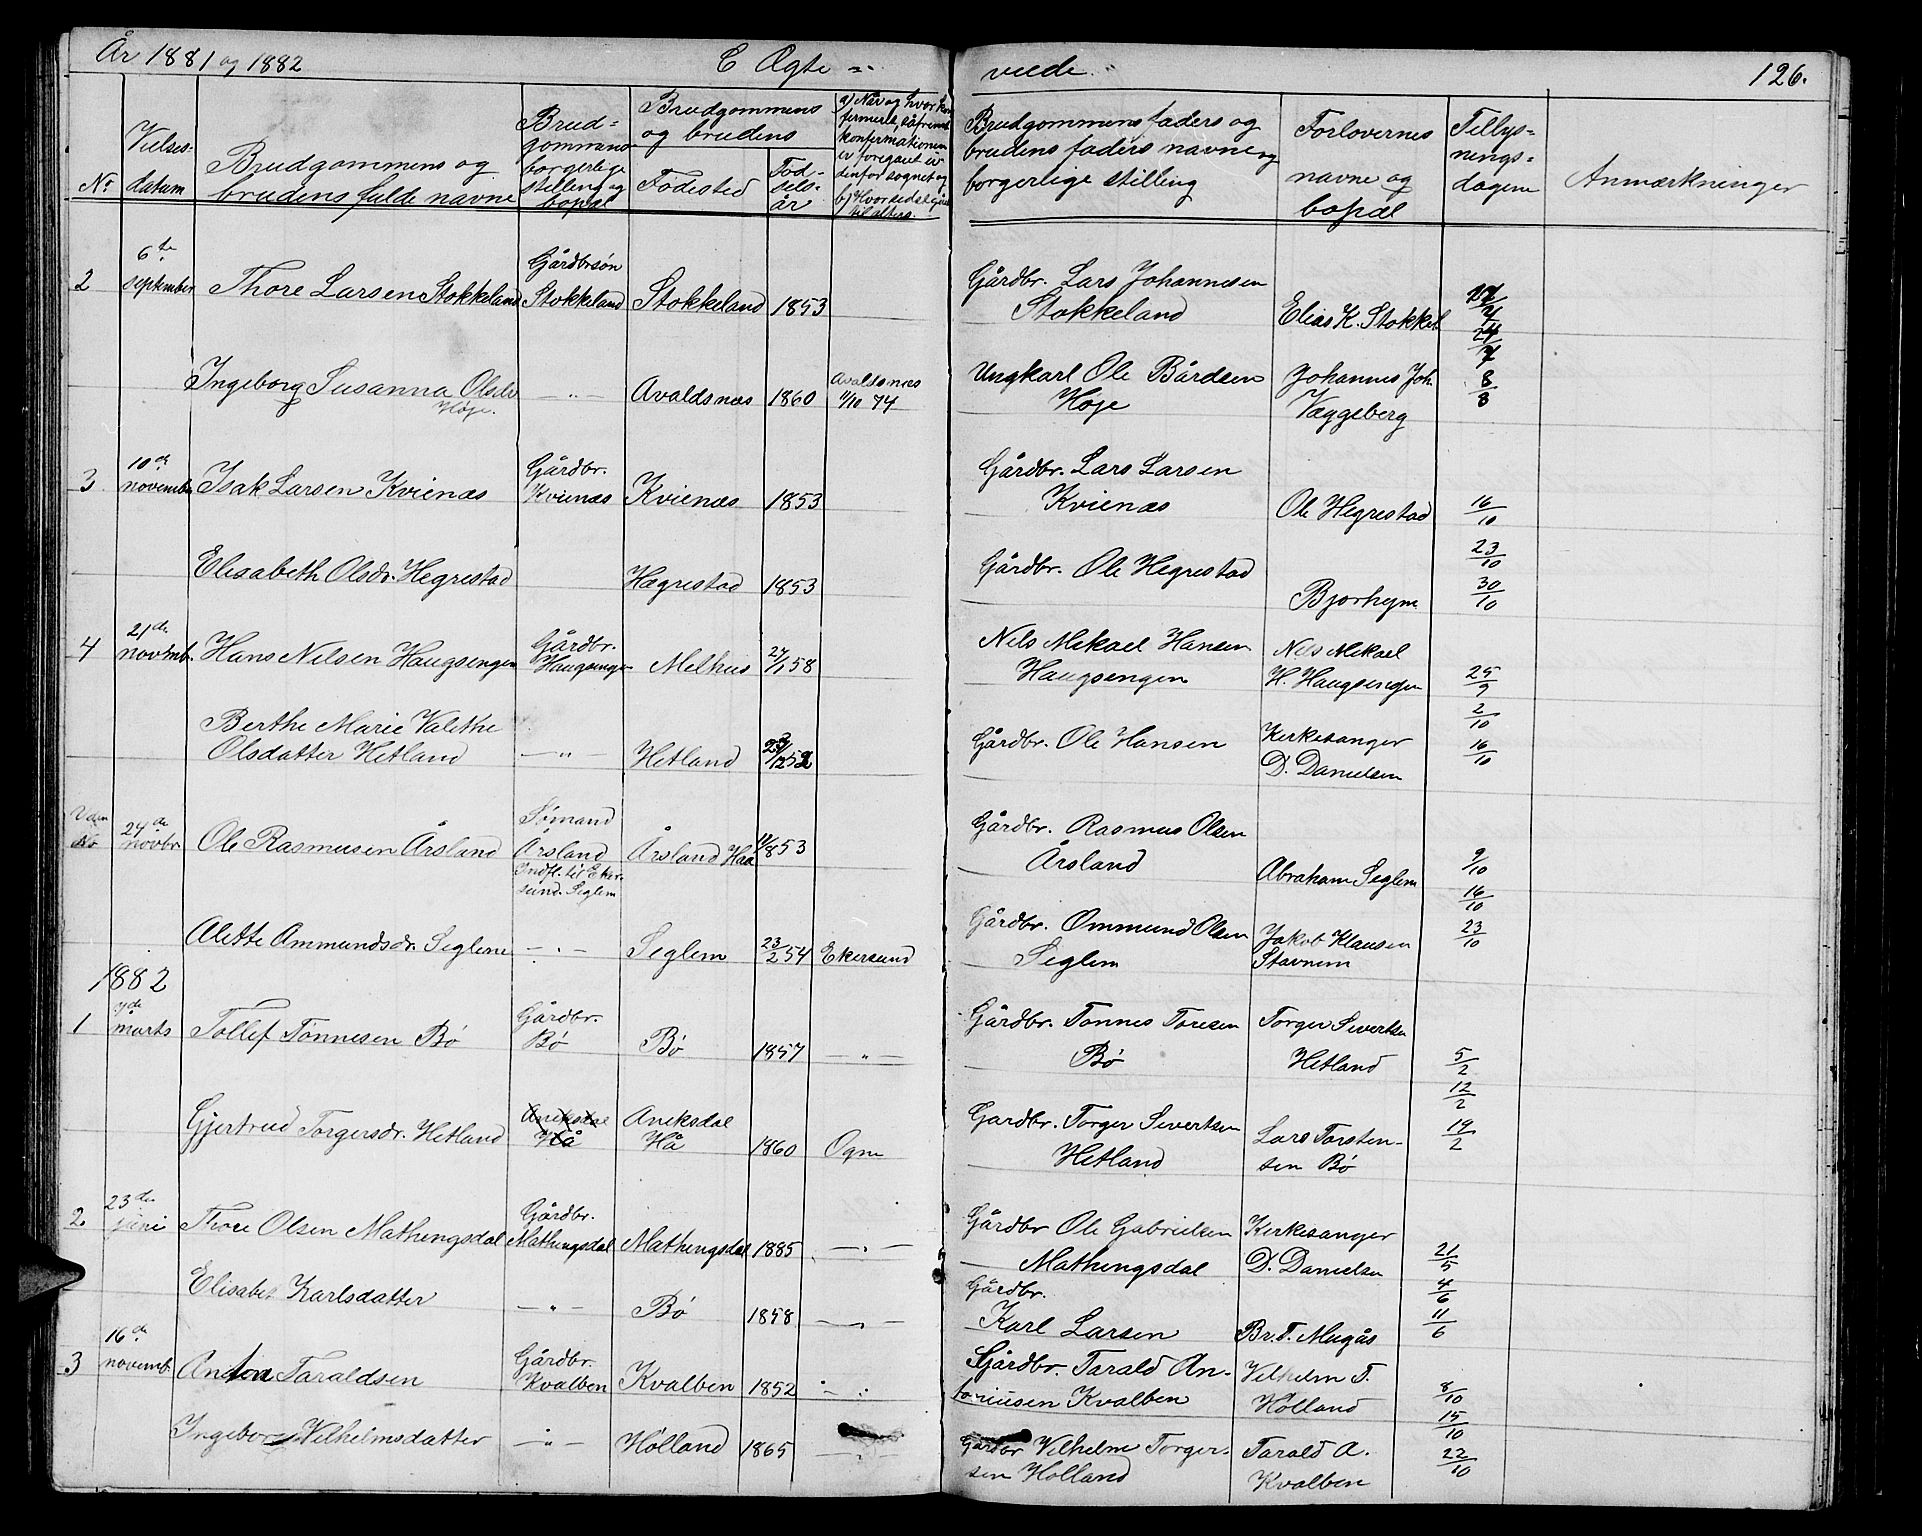 År 1881 og 1882
E Ægte =
viede.
126.
No
Vielses-
datum
Brudgommens og
brudens fulde navne
Brud=
gommens
borgerlige
stilling og
bopæl
Brudgommens
og brudens
Fødested
Fød-
sels-
år
a) Når og hvor kon
konfirmationen
er foregået
Brudgommens faders og
brudens faders navne og
borgerlige stilling
Forlovernes
navne og
bopæl
Tillys=
nings=
dagene
Anmærkninger
2
6te
september
Thore Larsen Stokkeland
Gårdbrsøn
Stokkeland
Stokkeland
1853
Gårdbr. Lars Johannesen
Stokkeland
Elias K. Stokkel.
Ingeborg Susanna Olsdr
Høje.
— " —
Avaldsnæs
1860
Avaldsnæs
11/10 74
Ungkarl Ole Bårdsen
Høje
Johannes Joh.
Væggeberg
8/8
3
10de
novembr
Isak Larsen Kvienæs
Gårdbr.
Kvienæs
Kvienæs
1853
Gårdbr. Lars Larsen
Kvienæs
Ole Hegrestad
16/10
Elisabeth Olsdr. Hegrestad
Hægrestad
1853
Gårdbr. Ole Hegrestad
Bjorhejm
23/10
30/10
4
21de
novemb.
Hans Nilsen Haugsengen
Gårdbr.
Haugsengen
Melhus
27/1 58
Nils Mikael Hansen
Haugsengen
Nils Mikael
H. Haugsengen
25/9
Berthe Marie Valethe
Olsdatter Hetland
— " —
Hetland
Gårdbr. Ole Hansen
Kirkesanger
D. Danielsen
2/10
16/10
Uden
No
24de
novbr
Ole Rasmusen Årsland
Sømand
Årsland
Indfl. til Eker-
sund. Seglem
Årsland Haa
11/8 53
Gårdbr. Rasmus Olsen
Årsland
Abraham Seglem
9/10
16/10
Alette Ommundsdr. Seglem
— " —
Seglem
23/2 54
Ekersund
Gårdbr. Ommund Olsen
Seglem
Jakob Klausen
Stavnem
23/10
1882
1
7de
marts
Tollef Tønnesen Bø
Gårdbr.
Bø
Bø
1857
— " —
Gårdbr. Tønnes Toresen
Bø
Torger Sivertsen
Hetland
5/2
12/2
Gjertrud Torgersdr. Hetland
Aniksdal
Hå
Aniksdal
Hå
1860
Ogne
Gårdbr. Torger Sivertsen
Hetland
Lars Torsten-
sen Bø
19/2
2.
23de
juni
Thore Olsen Mathingsdal
Gårdbr.
Mathingsdal
Mathingsdal
1885
— " —
Gårdbr Ole Gabrielsen
Mathingsdal
Kirkesanger
D. Danielsen
21/5
Elisabet Karlsdatter
— " —
Bø
1858
— " —
Gårdbr.
Karl Larsen
Br. T. Mugås
4/6
11/6
3
16de
novemb.
Anton Taraldsen
Gårdbr.
Kvalben
Kvalben
1852
— " —
Gårdbr. Tarald An-
toniusen Kvalben
Vilhelm T.
Hølland
8/10
15/10
Ingeborg Vilhelmsdatter
— " —
Hølland
1865
— " —
Gårdbr Vilhelm Torger-
sen Hølland
Tarald A.
Kvalben
22/10